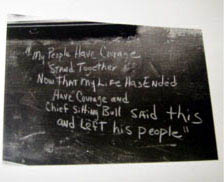 "My People Have Courage
Stand Together
Now That My Life Has Ended
Have Courage and
Chief Sitting Bull said this
and Left his people"